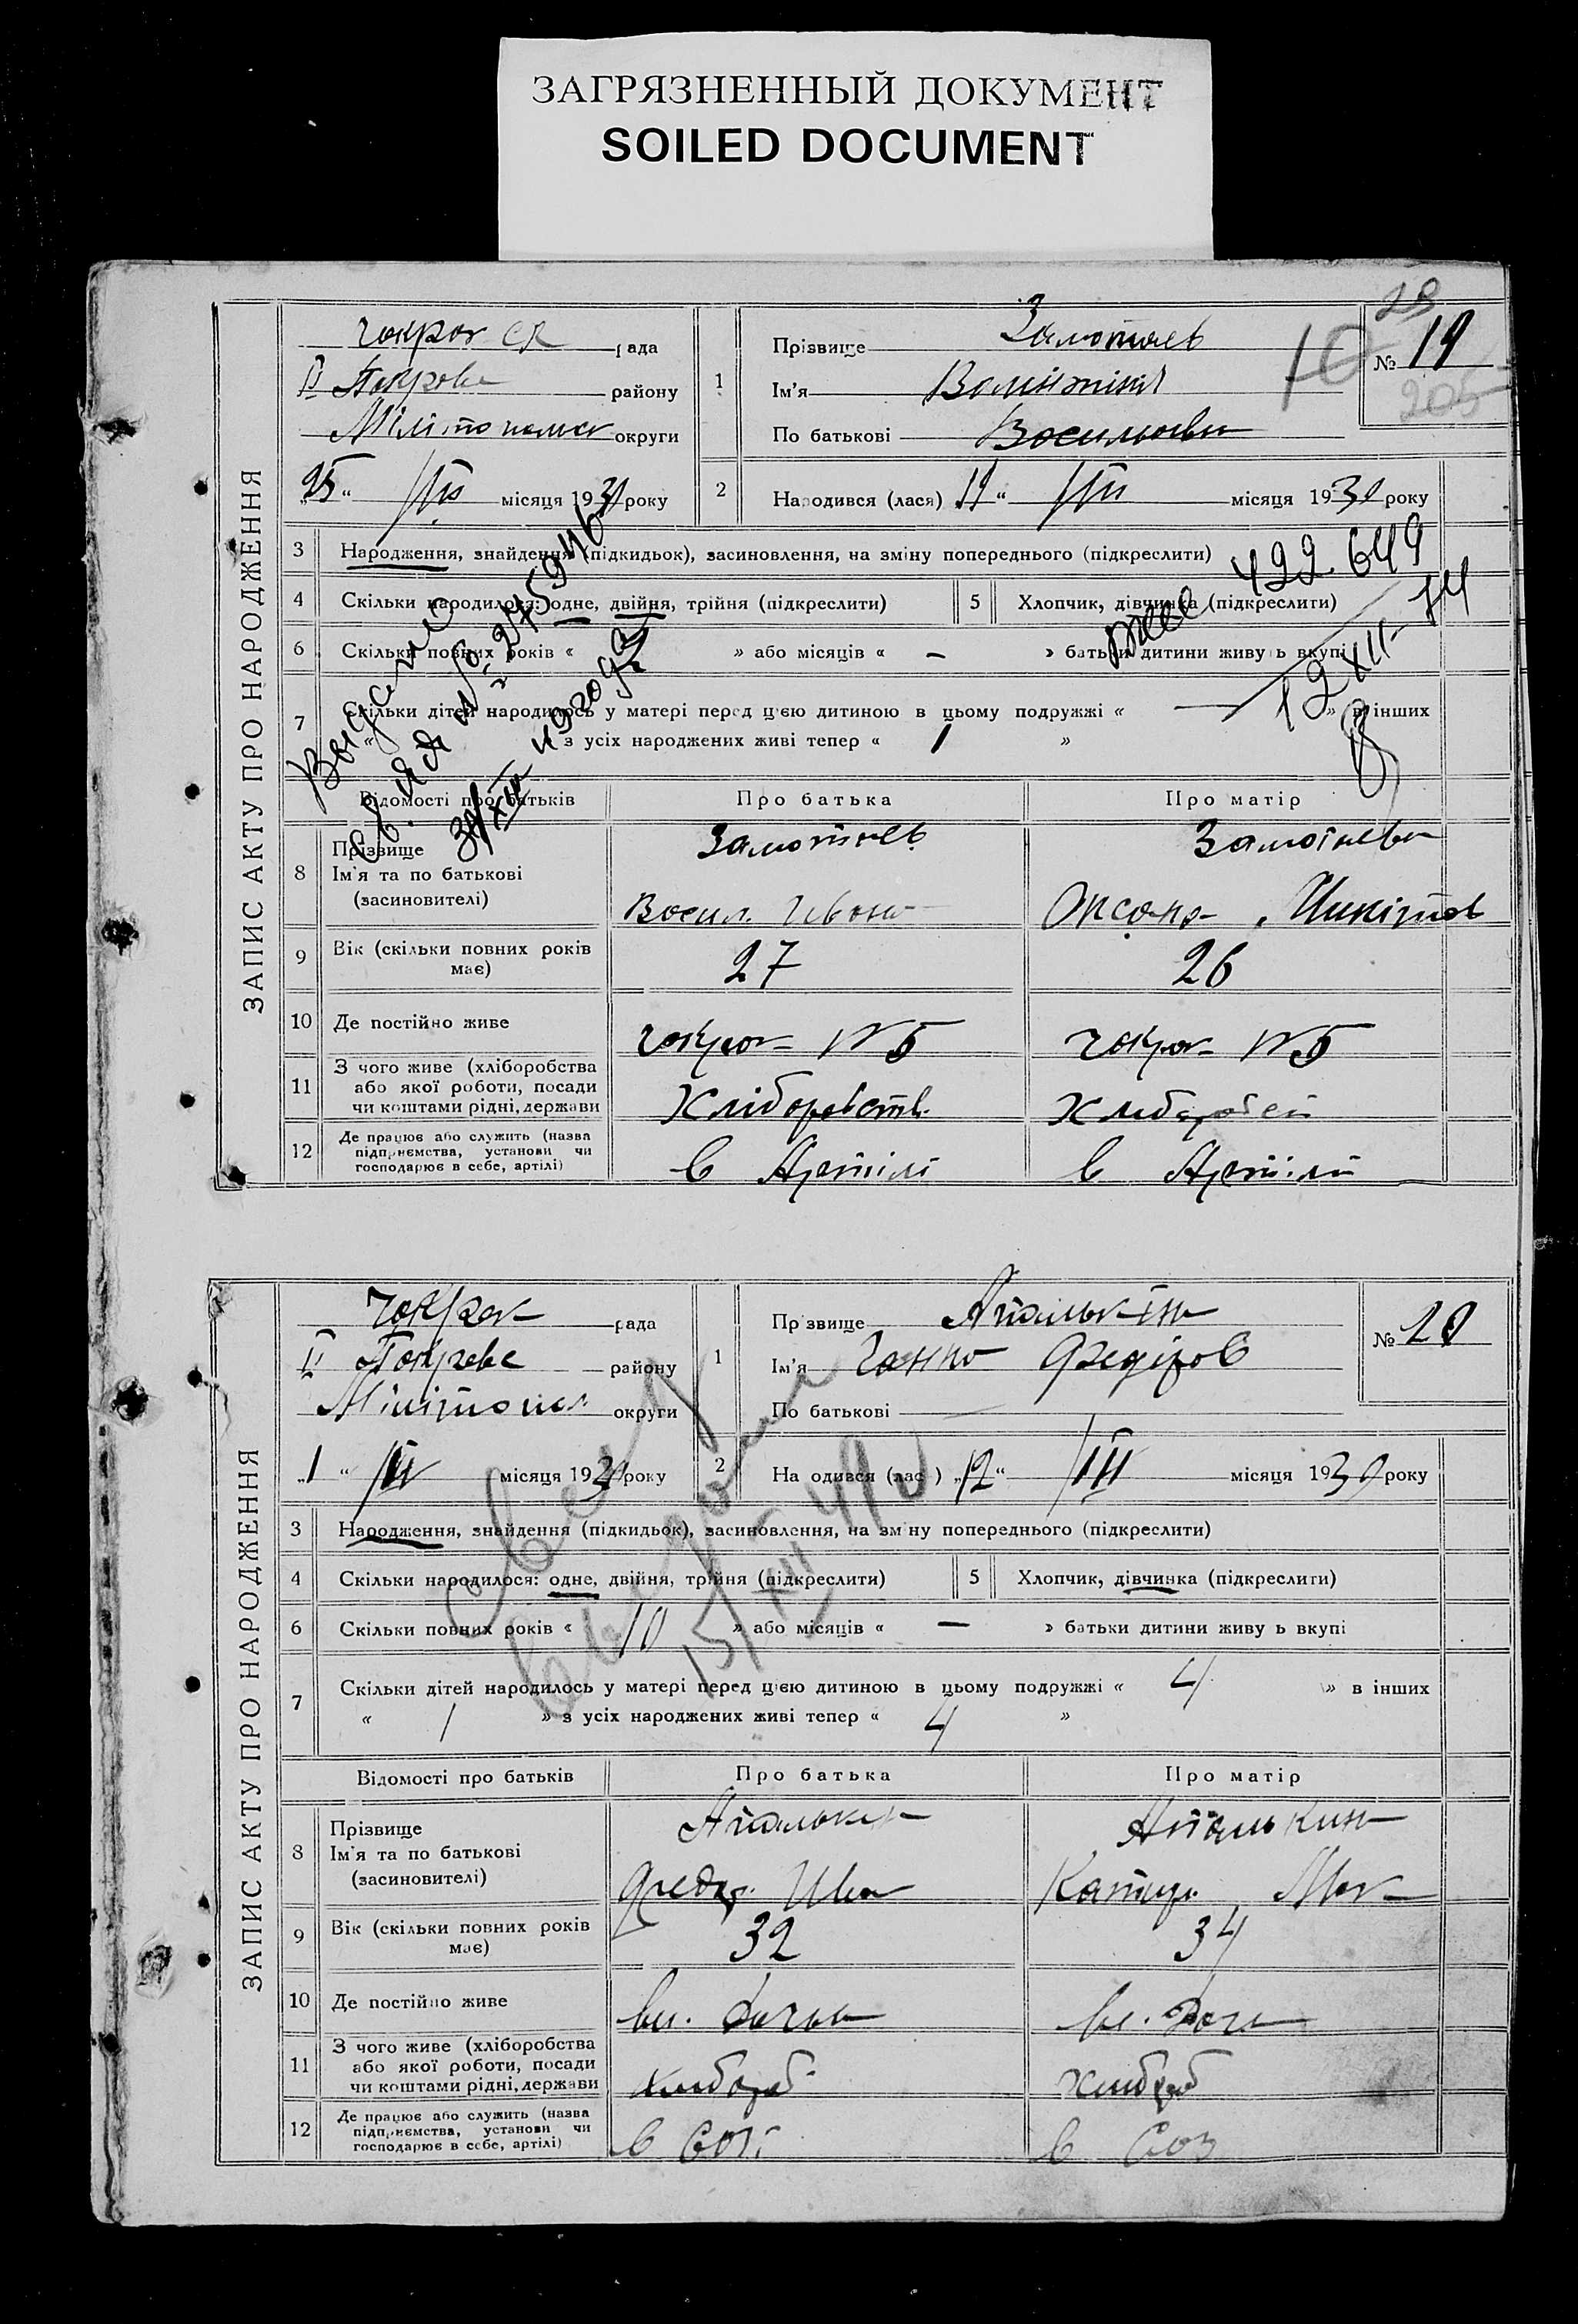 ЗАГРЯЗНЕННЫЙ ДОКУМЕНТ
SOILED DOCUMENT
ЗАПИС АКТУ ПРО НАРОДЖЕННЯ
Чокрак СР рада
II Покровс району
Мілітопольск округи
„25“ III місяця 1930 року
1 Прізвище
Ім'я Валентіна
По батькові Васильовна
№ 19
28
10
205
2 Народився (лася) 11“ III місяця 1930 року
3 Народження, знайдення (підкидьок), засиновлення, на зміну попереднього (підкреслити)
4 Скільки народилося: одне, двійня, трійня (підкреслити) 5 Хлопчик, дівчинка (підкреслити)
6 Скільки повних років « » або місяців « — » батьки дитини живуь вкупі
7 Скільки дітей народилось у матері перед цією дитиною в цьому подружжі « — » в інших
« » з усіх народжених живі тепер « 1 »
Выдано
св. ЯД № 2759461
422.649
12 XII-74
Відомості про батьків Про батька Про матір
8 Прізвище
Ім'я та по батькові
(засновителі)
Васил. Івано
Оксана Микітов
9 Вік (скільки повних років має) 27 26
10 Де постійно живе Чокрак №5 Чокрак №5
11 З чого живе (хліборобства або якої роботи, посади чи коштами рідні, держави Хліборобств.
12 Де працює або служить (назва підприємства, установи чи господарює в себе, артілі) в Артілі в Артілі
ЗАПИС АКТУ ПРО НАРОДЖЕННЯ
Чокрак рада
II Покровс району
Мілітопол округи
„1“ місяця 1930 року
1 Прізвище Апалькіна
Ім'я Ганна Федіров
По батькові
№ 20
2 Народився (лася) „12“ III місяця 1930 року
3 Народження, знайдення (підкидьок), засиновлення, на зміну попереднього (підкреслити)
4 Скільки народилося: одне, двійня, трійня (підкреслити) 5 Хлопчик, дівчинка (підкреслити)
6 Скільки повних років « 10 » або місяців « — » батьки дитини живуь вкупі
7 Скільки дітей народилось у матері перед цією дитиною в цьому подружжі « 4 » в інших
« 1 » з усіх народжених живі тепер « 4 »
Відомості про батьків Про батька Про матір
8 Прізвище
Ім'я та по батькові
(засиновителі)
Апалькин Апалькина
Федор. Ива Катер. Мак
9 Вік (скільки повних років має) 32 34
10 Де постійно живе
11 З чого живе (хліборобства або якої роботи, посади чи коштами рідні, держави хлібороб хлібороб
12 Де працює або служить (назва підприємства, установи чи господарює в себе, артілі) в Соз в Соз